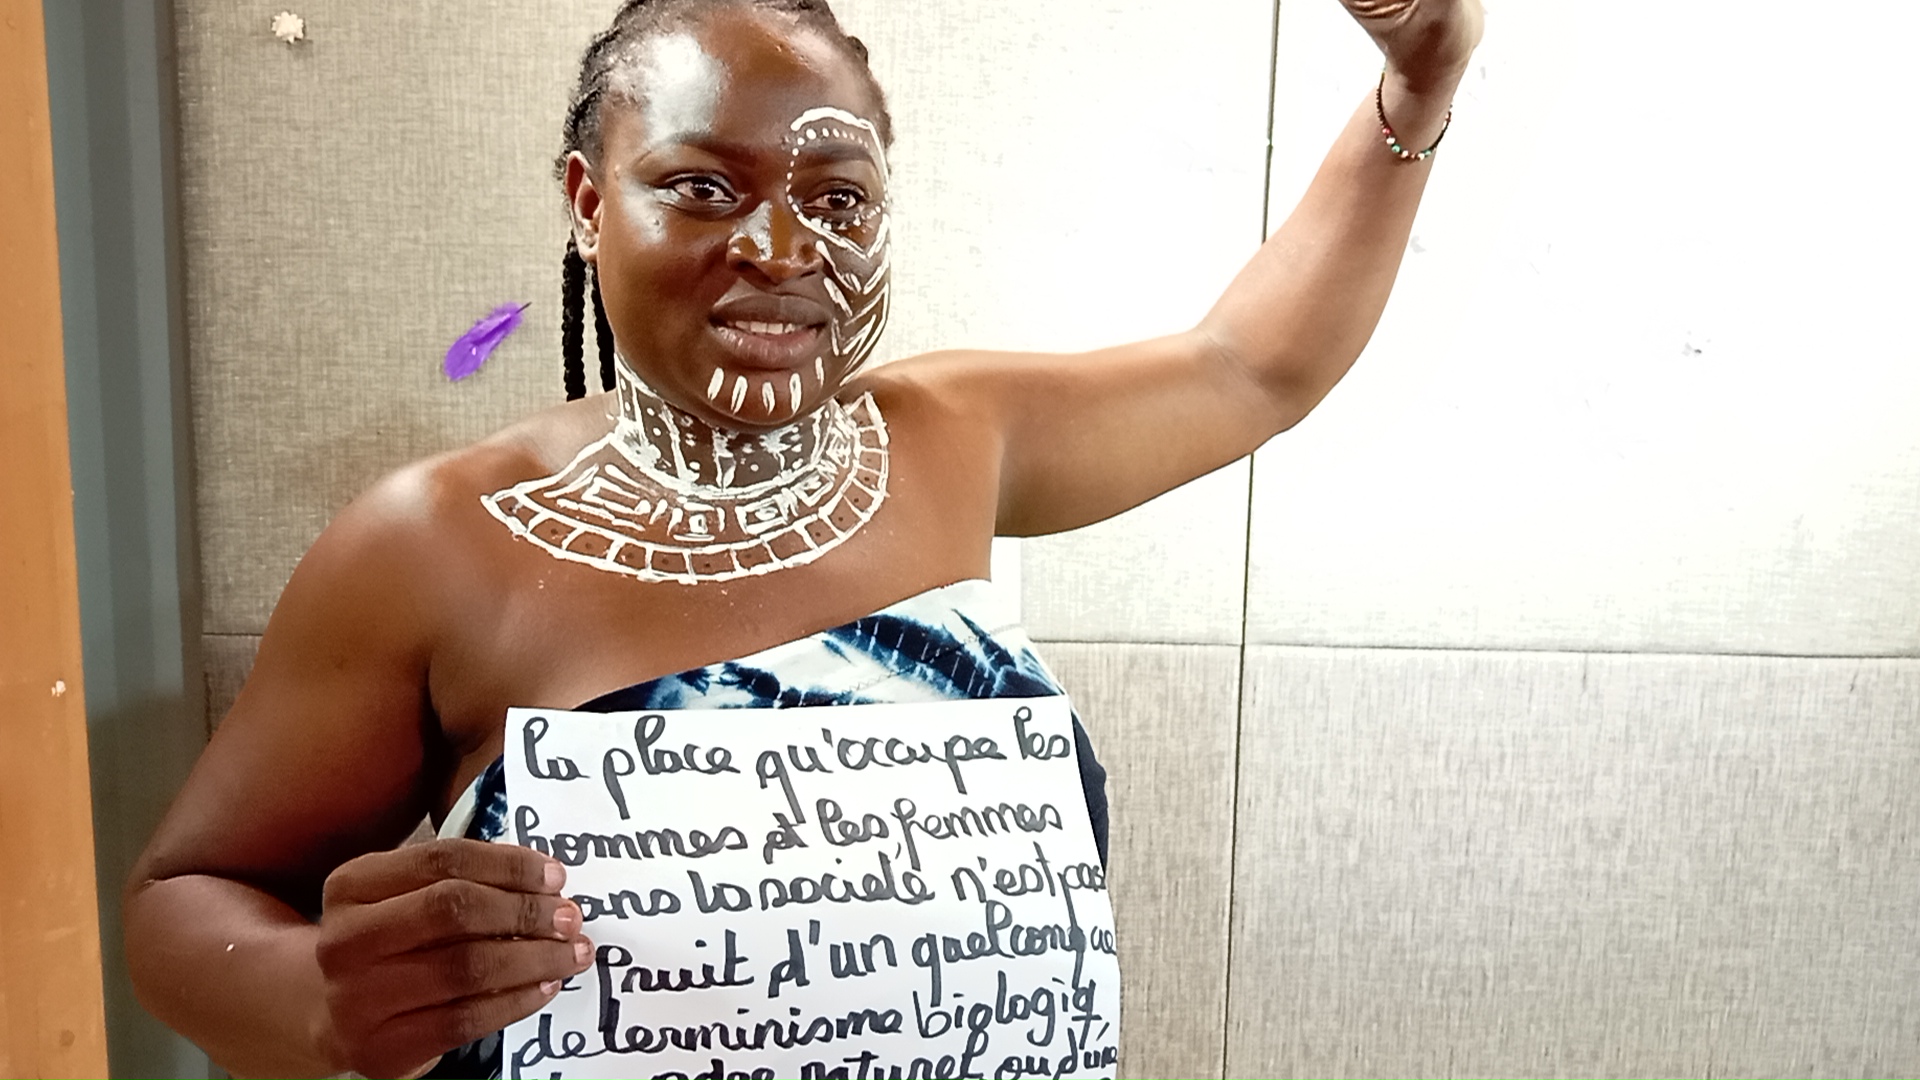 la place qu'occupe les
hommes et les femmes
ans la société n'est pas
fruit d'un quelconque
determinisme biologiq
naturel ou d'une